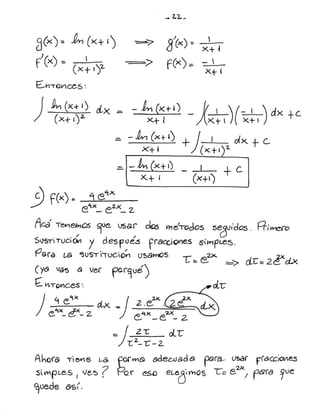 -22-
g(x) = ln (x+1) ⟹ g'(x) = 1/(x+1)
f'(x) = 1/(x+1)² ⟹ f(x) = -1/(x+1)
Entonces:
∫ ln(x+1)/(x+1)² dx = -ln(x+1)/(x+1) - ∫(1/(x+1))(-1/(x+1)) dx + C
= -ln(x+1)/(x+1) + ∫ 1/(x+1)² dx + C
= -ln(x+1)/(x+1) - 1/(x+1) + C
c) f(x) = 4e^4x/(e^4x - e^2x - 2)
Acá tenemos que usar dos métodos seguidos. Primero
sustitución y después fracciones simples.
Para la sustitución usamos τ = e^2x ⟹ dτ = 2e^2x dx
(ya vas a ver porqué)
Entonces: dτ
∫ 4e^4x/(e^4x - e^2x - 2) dx = ∫ 2.e^2x (2e^2x dx)/(e^4x - e^2x - 2)
= ∫ 2τ/(τ² - τ - 2) dτ
Ahora tiene la forma adecuada para usar fracciones
simples, ves? Por eso elegimos τ = e^2x, para que
quede así.